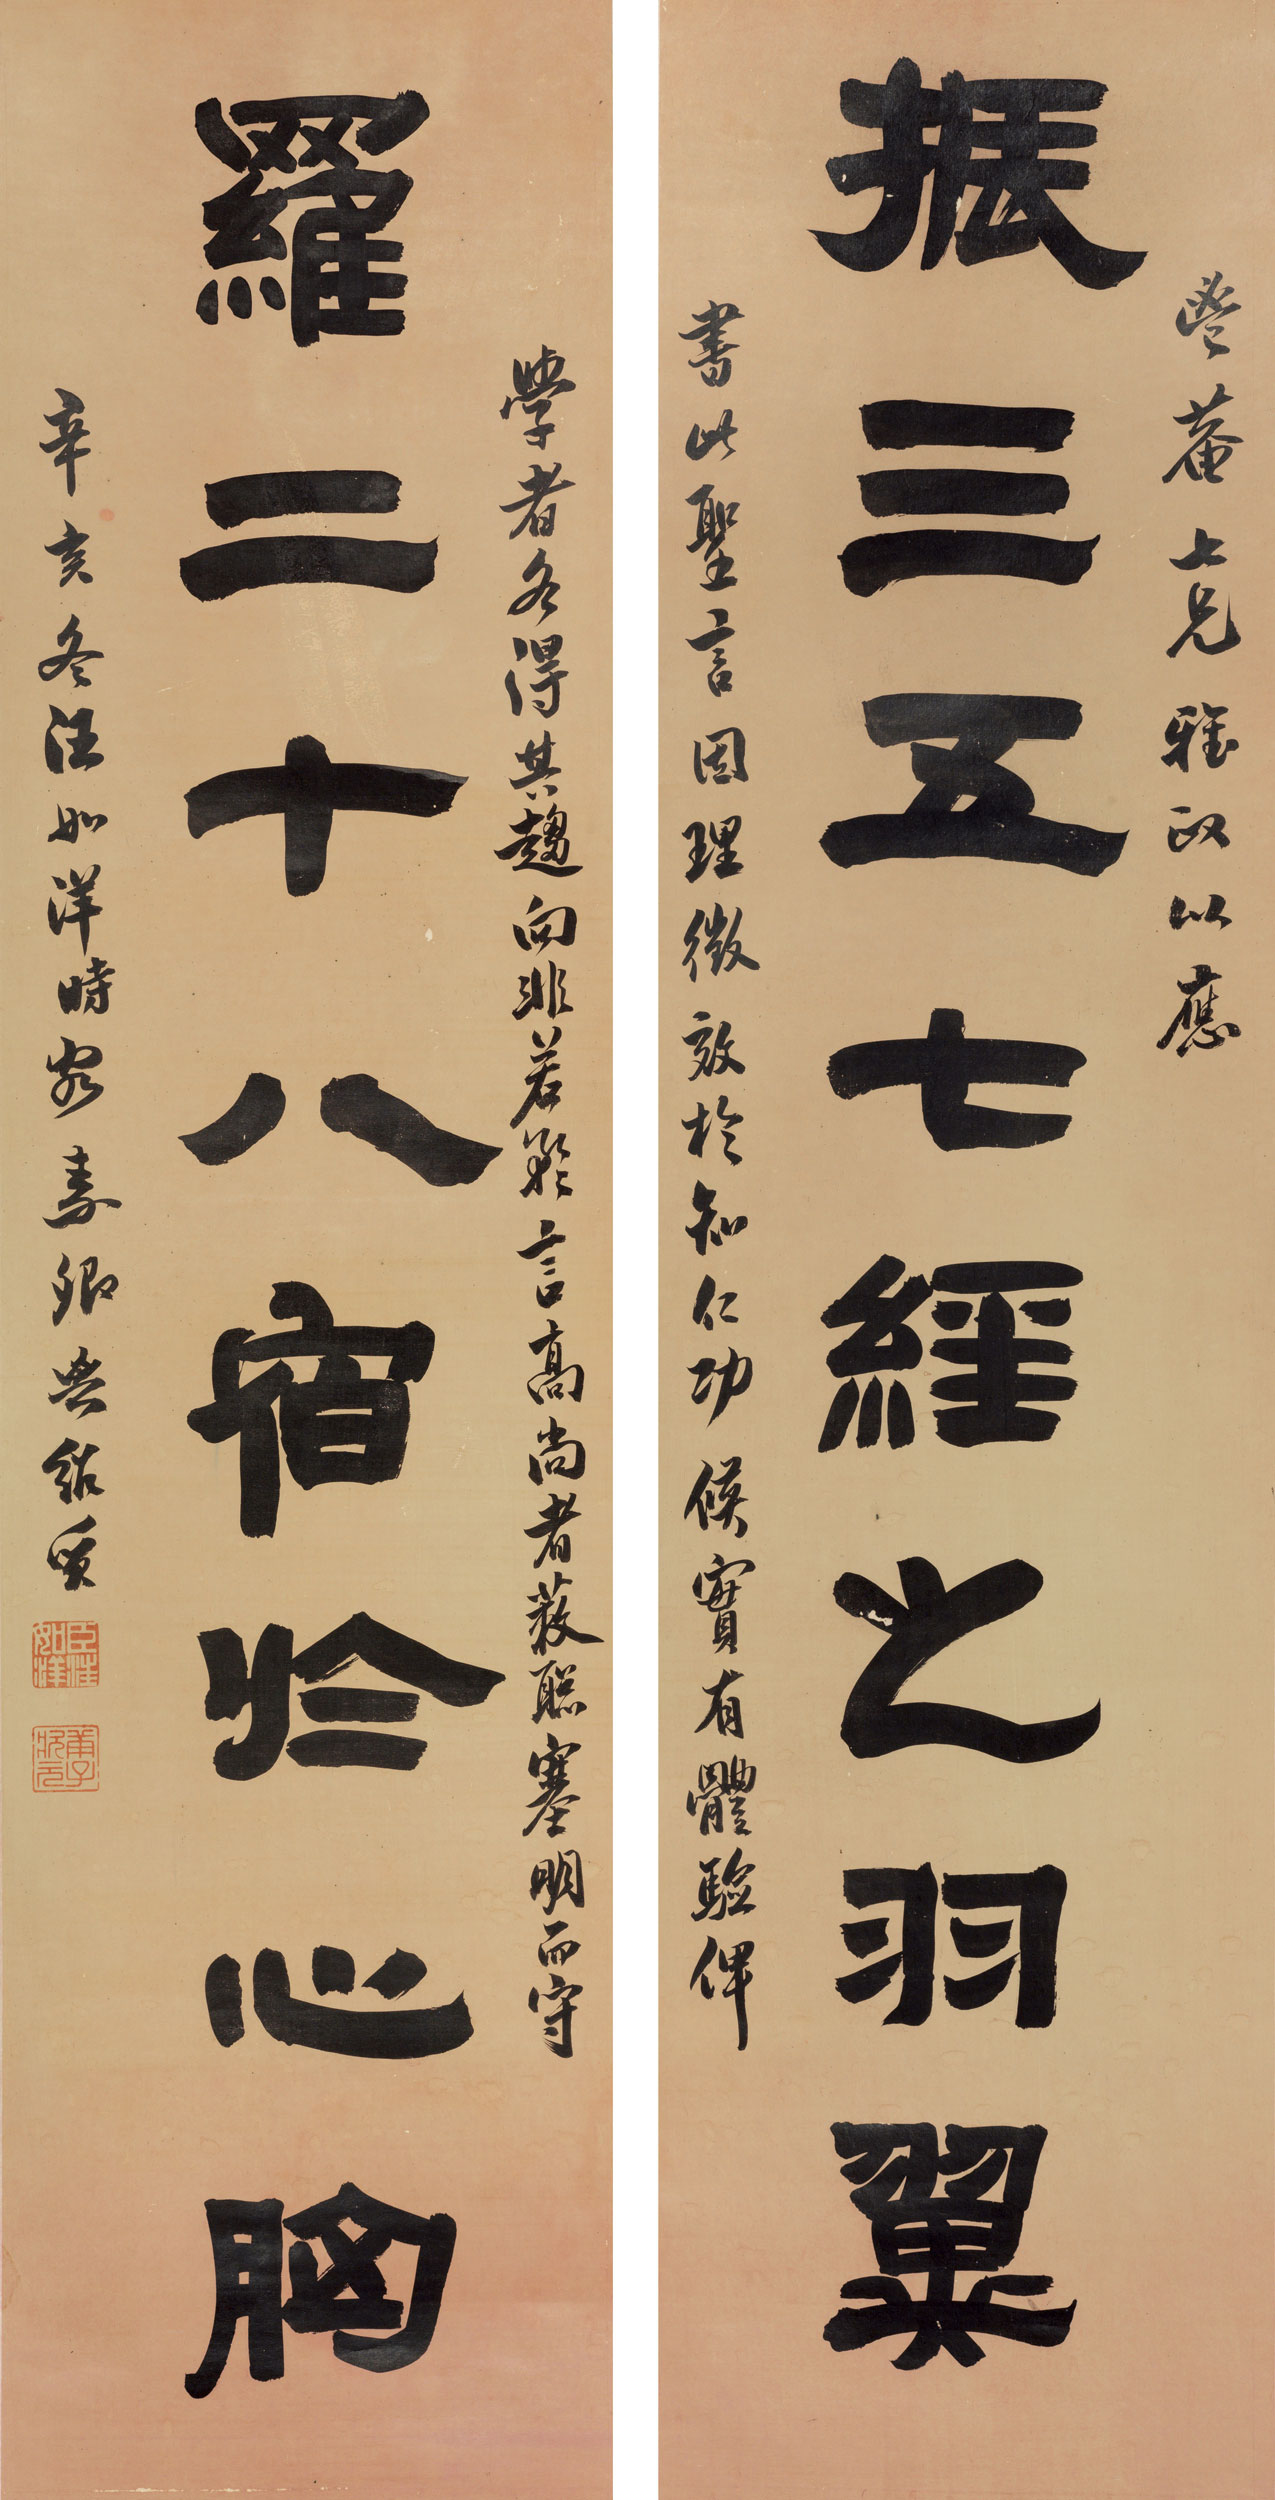 振三五七經之羽翼
蓉菴七兄雅政以應
書此聖言因理徵效於知仁功候實有體驗俾
羅二十八宿於心胸
學者各得其趨向非若夸言高尚者蔽聰塞明而守
辛亥冬汪如洋時客壽卿
臣汪如洋